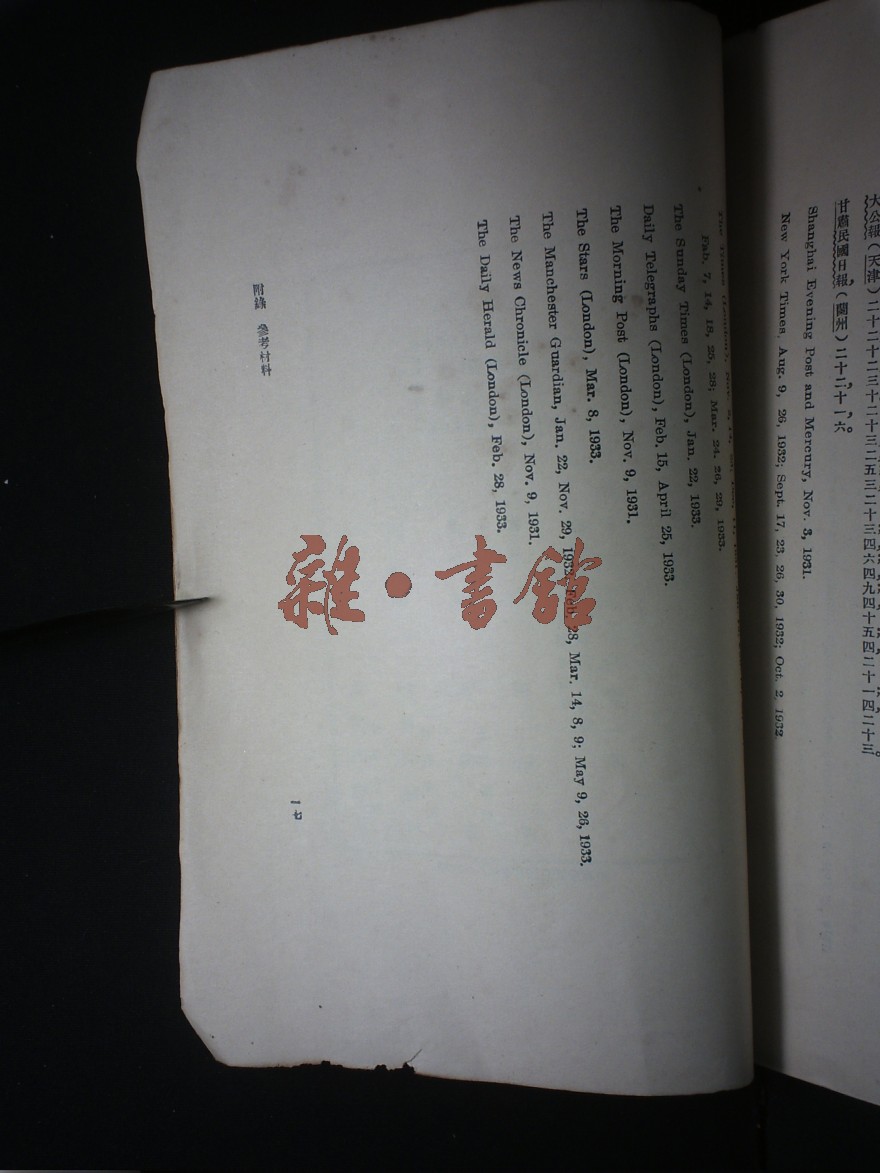 大公報（天津）
甘肅民國日報（蘭州）二十、二、十一、六。
Shanghai Evening Post and Mercury, Nov. 3, 1931.
New York Times, Aug. 9, 26, 1932; Sept. 17, 23, 26, 30, 1932; Oct. 2, 1932
The Times (London),
Feb. 7, 14, 18, 25, 28; Mar. 24, 26, 29, 1933.
The Sunday Times (London), Jan. 22, 1933.
Daily Telegraphs (London), Feb. 15, April 25, 1933.
The Morning Post (London), Nov. 9, 1931.
The Stars (London), Mar. 8, 1933.
The Manchester Guardian, Jan. 22, Nov. 29, 1932; Feb. 28, Mar. 14, 8, 9; May 9, 26, 1933.
The News Chronicle (London), Nov. 9, 1931.
The Daily Herald (London), Feb. 28, 1933.
附錄 參考材料
一七
雜·書館